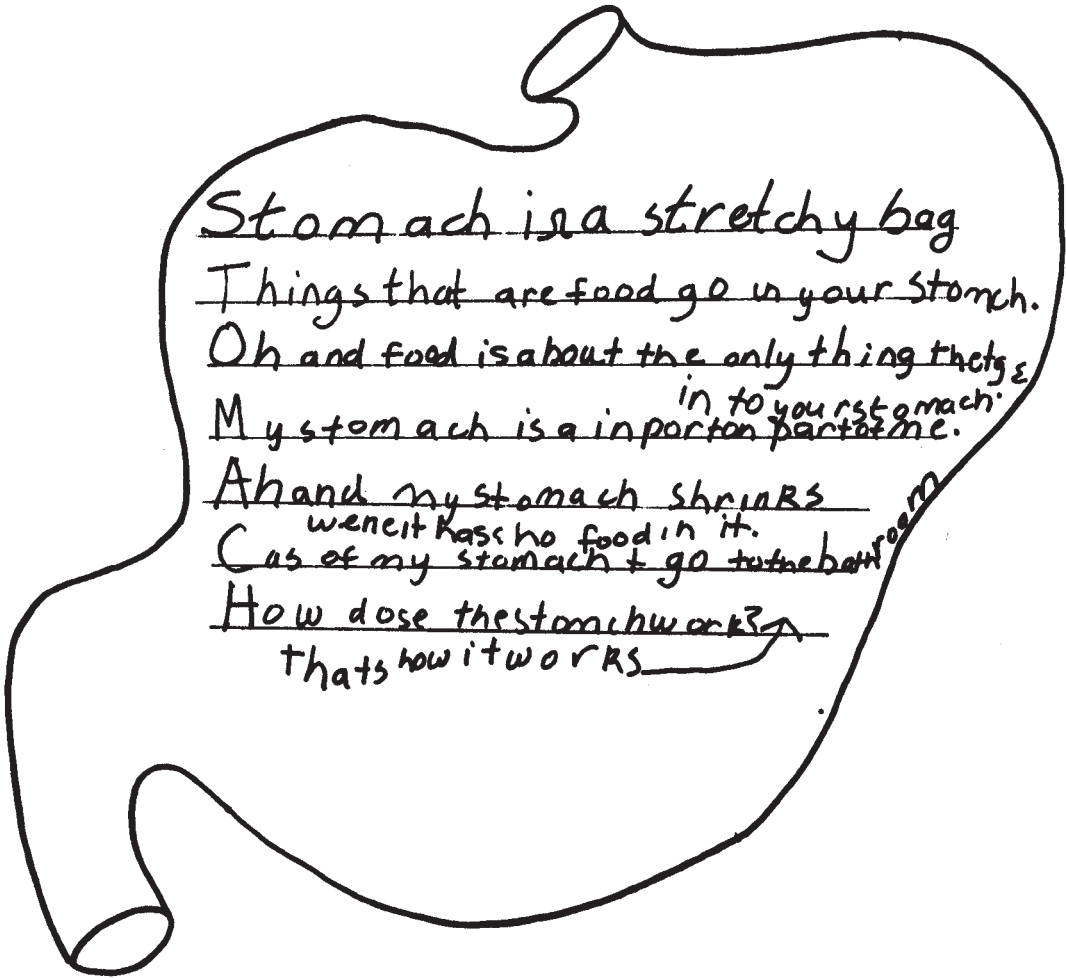 Stomach is a stretchy bag
Things that are food go in your stomch.
Oh and food is about the only thing thetgε
in to your stomach.
My stomach is a inporton part of me.
Ah and my stomach shrinks
wene it hass no food in it.
Cas of my stomach I go to the bathroom
How dose the stomch work?
thats how it works